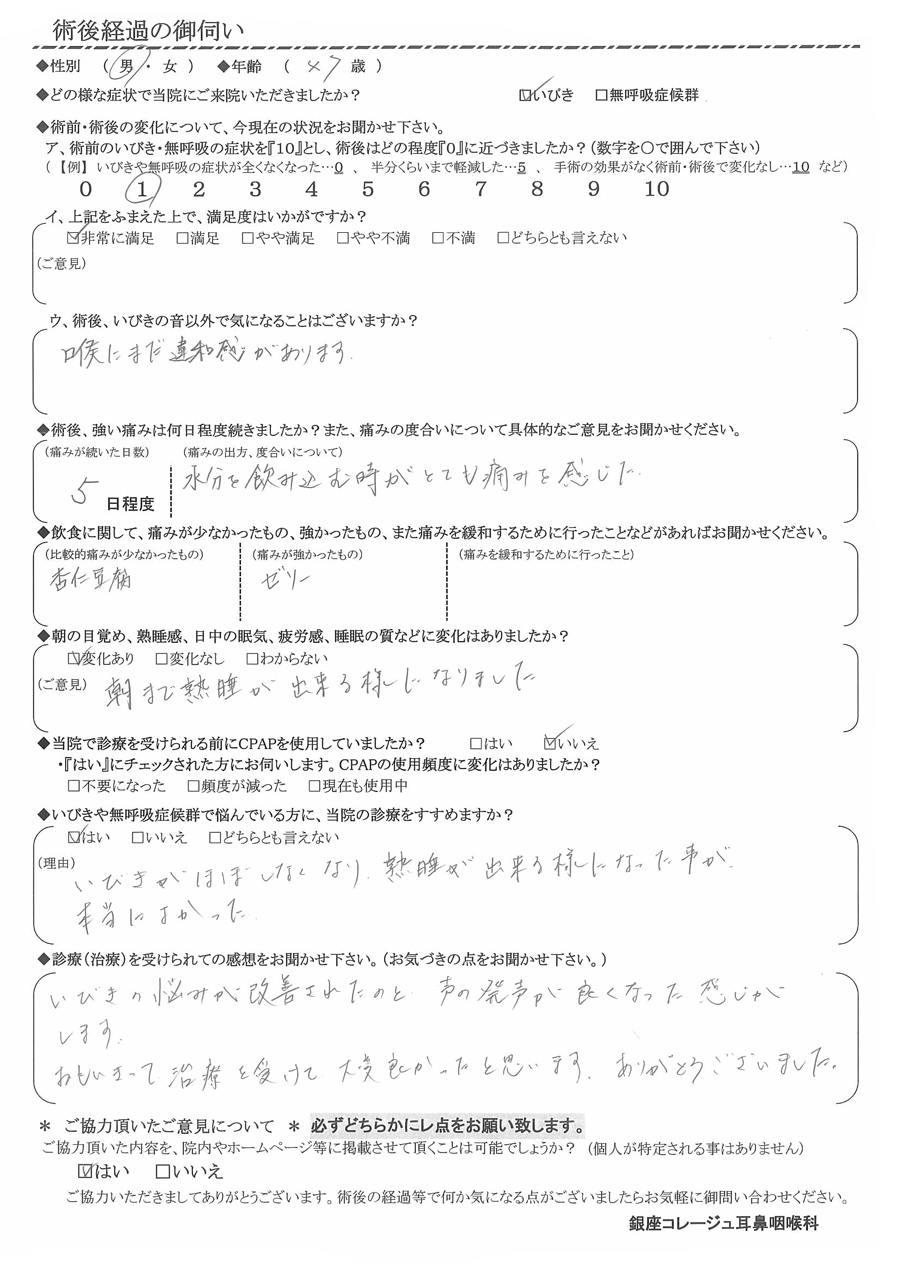 術後経過の御伺い
◆性別 （ 男 ・ 女 ） ◆年齢 （ 47 歳 ）
◆どの様な症状で当院にご来院いただきましたか？ ☑いびき □無呼吸症候群
◆術前・術後の変化について、今現在の状況をお聞かせ下さい。
ア、術前のいびき・無呼吸の症状を『10』とし、術後はどの程度『0』に近づきましたか？（数字を○で囲んで下さい）
（ 【例】 いびきや無呼吸の症状が全くなくなった…0 、 半分くらいまで軽減した…5 、 手術の効果がなく術前・術後で変化なし…10 など）
0 1 2 3 4 5 6 7 8 9 10
イ、上記をふまえた上で、満足度はいかがですか？
☑非常に満足 □満足 □やや満足 □やや不満 □不満 □どちらとも言えない
（ご意見）
ウ、術後、いびきの音以外で気になることはございますか？
喉にまだ違和感があります.
◆術後、強い痛みは何日程度続きましたか？また、痛みの度合いについて具体的なご意見をお聞かせください。
（痛みが続いた日数） （痛みの出方、度合いについて）
5 日程度 水分を飲み込む時がとても痛みを感じた.
◆飲食に関して、痛みが少なかったもの、強かったもの、また痛みを緩和するために行ったことなどがあればお聞かせください。
（比較的痛みが少なかったもの） （痛みが強かったもの） （痛みを緩和するために行ったこと）
杏仁豆腐 ゼリー
◆朝の目覚め、熟睡感、日中の眠気、疲労感、睡眠の質などに変化はありましたか？
☑変化あり □変化なし □わからない
（ご意見） 朝まで熟睡が出来る様になりました
◆当院で診療を受けられる前にCPAPを使用していましたか？ □はい ☑いいえ
・『はい』にチェックされた方にお伺いします。CPAPの使用頻度に変化はありましたか？
□不要になった □頻度が減った □現在も使用中
◆いびきや無呼吸症候群で悩んでいる方に、当院の診療をすすめますか？
☑はい □いいえ □どちらとも言えない
（理由） いびきがほぼしなくなり、熟睡が出来る様になった事が、
本当によかった.
◆診療（治療）を受けられての感想をお聞かせ下さい。（お気づきの点をお聞かせ下さい。）
いびきの悩みが改善されたのと、声の発声が良くなった感じが
します.
おもいきって治療を受けて大変良かったと思います. ありがとうございました。
＊ ご協力頂いたご意見について ＊ 必ずどちらかにレ点をお願い致します。
ご協力頂いた内容を、院内やホームページ等に掲載させて頂くことは可能でしょうか？（個人が特定される事はありません）
☑はい □いいえ
ご協力いただきましてありがとうございます。術後の経過等で何か気になる点がございましたらお気軽に御問い合わせください。
銀座コレージュ耳鼻咽喉科